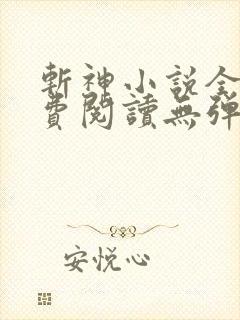 斬神小説全
費閱讀無彈
安悅心